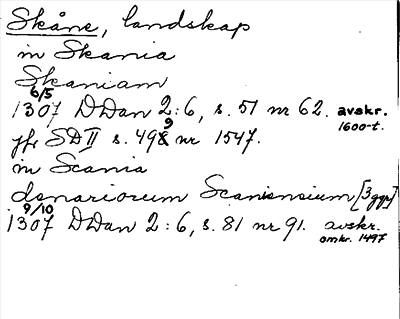 Skåne, landskap
in Skania
Skaniam
6/5
1307 DDan 2:6, s. 51 nr 62. avskr. 1600-t.
jfr SD II s. 499 nr 1547.
in Scania
denariorum Scaniensium [3 ggr]
9/10
1307 DDan 2:6, s. 81 nr 91. avskr. omkr. 1497